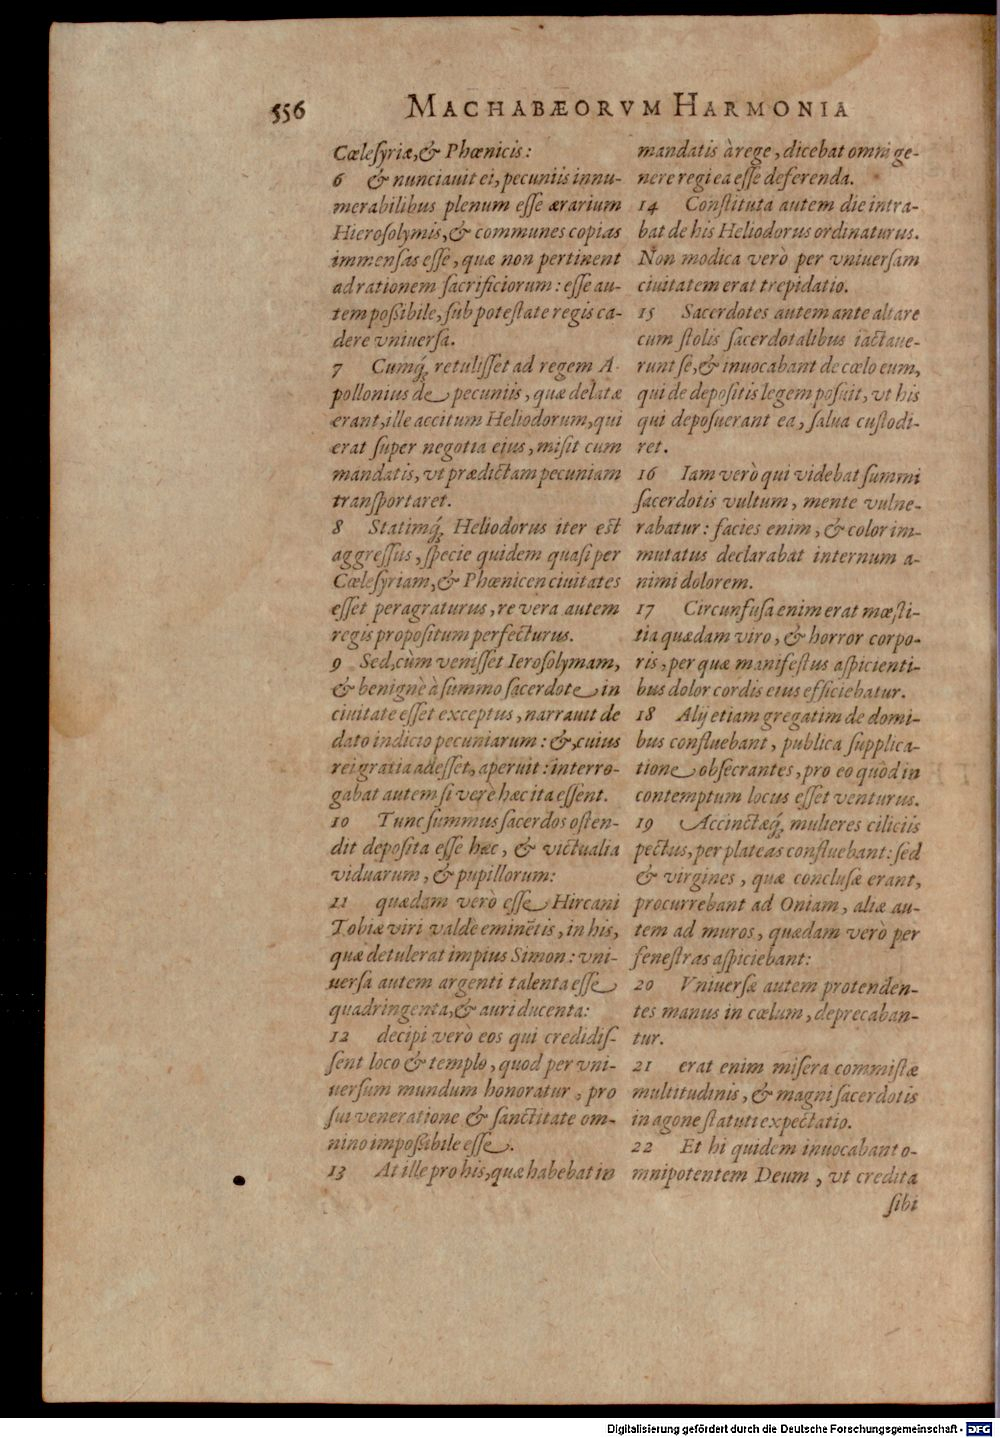 556 MACHABÆORVM HARMONIA
Cœleſyriæ, & Phœnicis:
6 & nunciauit ei, pecuniis innu-
merabilibus plenum eſſe ærarium
Hieroſolymis, & communes copias
immenſas eſſe, quæ non pertinent
ad rationem ſacrificiorum: eſſe au-
tem poſſibile, ſub poteſtate regis ca-
dere vniuerſa.
7 Cumq́; retuliſſet ad regem A-
pollonius de pecuniis, quæ delatæ
erant, ille accitum Heliodorum, qui
erat ſuper negotia eius, miſit cum
mandatis, vt prædictam pecuniam
tranſportaret.
8 Statimq́; Heliodorus iter eſt
aggreſſus, ſpecie quidem quaſi per
Cœleſyriam, & Phœnicen ciuitates
eſſet peragraturus, re vera autem
regis propoſitum perfecturus.
9 Sed, cùm veniſſet Ieroſolymam,
& benignè à ſummo ſacerdote in
ciuitate eſſet exceptus, narrauit de
dato indicio pecuniarum: &, cuius
rei gratia adeſſet, aperuit: interro-
gabat autem ſi verè hæc ita eſſent.
10 Tunc ſummus ſacerdos oſten-
dit depoſita eſſe hæc, & victualia
viduarum, & pupillorum:
11 quædam verò eſſe Hircani
Tobiæ viri valdè eminẽtis, in his,
quæ detulerat impius Simon: vni-
uerſa autem argenti talenta eſſe
quadringenta, & auri ducenta:
12 decipi verò eos qui credidiſ-
ſent loco & templo, quod per vni-
uerſum mundum honoratur, pro
ſui veneratione & ſanctitate om-
nino impoſſibile eſſe.
13 At ille pro his, quæ habebat in
mandatis à rege, dicebat omni ge-
nere regi ea eſſe deferenda.
14 Conſtituta autem die intra-
bat de his Heliodorus ordinaturus.
Non modica verò per vniuerſam
ciuitatem erat trepidatio.
15 Sacerdotes autem ante altare
cum ſtolis ſacerdotalibus iactaue-
runt ſe, & inuocabant de cœlo eum,
qui de depoſitis legem poſuit, vt his
qui depoſuerant ea, ſalua cuſtodi-
ret.
16 Iam verò qui videbat ſummi
ſacerdotis vultum, mente vulne-
rabatur: facies enim, & color im-
mutatus declarabat internum a-
nimi dolorem.
17 Circunfuſa enim erat mœſti-
tia quædam viro, & horror corpo-
ris, per quæ manifeſtus aſpicienti-
bus dolor cordis eius efficiebatur.
18 Alij etiam gregatim de domi-
bus confluebant, publica ſupplica-
tione obſecrantes, pro eo quòd in
contemptum locus eſſet venturus.
19 Accinctæq́; mulieres ciliciis
pectus, per plateas confluebant: ſed
& virgines, quæ concluſæ erant,
procurrebant ad Oniam, aliæ au-
tem ad muros, quædam verò per
feneſtras aſpiciebant:
20 Vniuerſæ autem protenden-
tes manus in cœlum, deprecaban-
tur.
21 erat enim miſera commiſtæ
multitudinis, & magni ſacerdotis
in agone ſtatuti expectatio.
22 Et hi quidem inuocabant o-
mnipotentem Deum, vt credita
ſibi
Digitalisierung gefördert durch die Deutsche Forschungsgemeinschaft - DFG